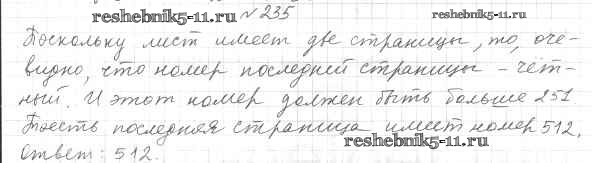 reshebnik5-11.ru №235 reshebnik5-11.ru
Поскольку лист имеет две страницы, то, оче-
видно, что номер последней страницы - чёт-
ный. И этот номер должен быть больше 251
Тоесть последняя страница имеет номер 512.
Ответ: 512. reshebnik5-11.ru